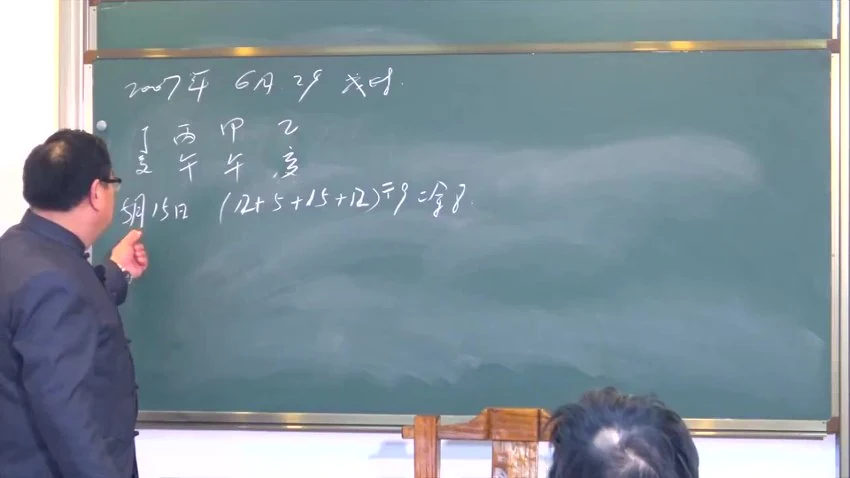 2007年 6月 29 亥时.
丁 丙 甲 乙
亥 午 午 亥
5月15日 (12+5+15+12)÷9=余8.